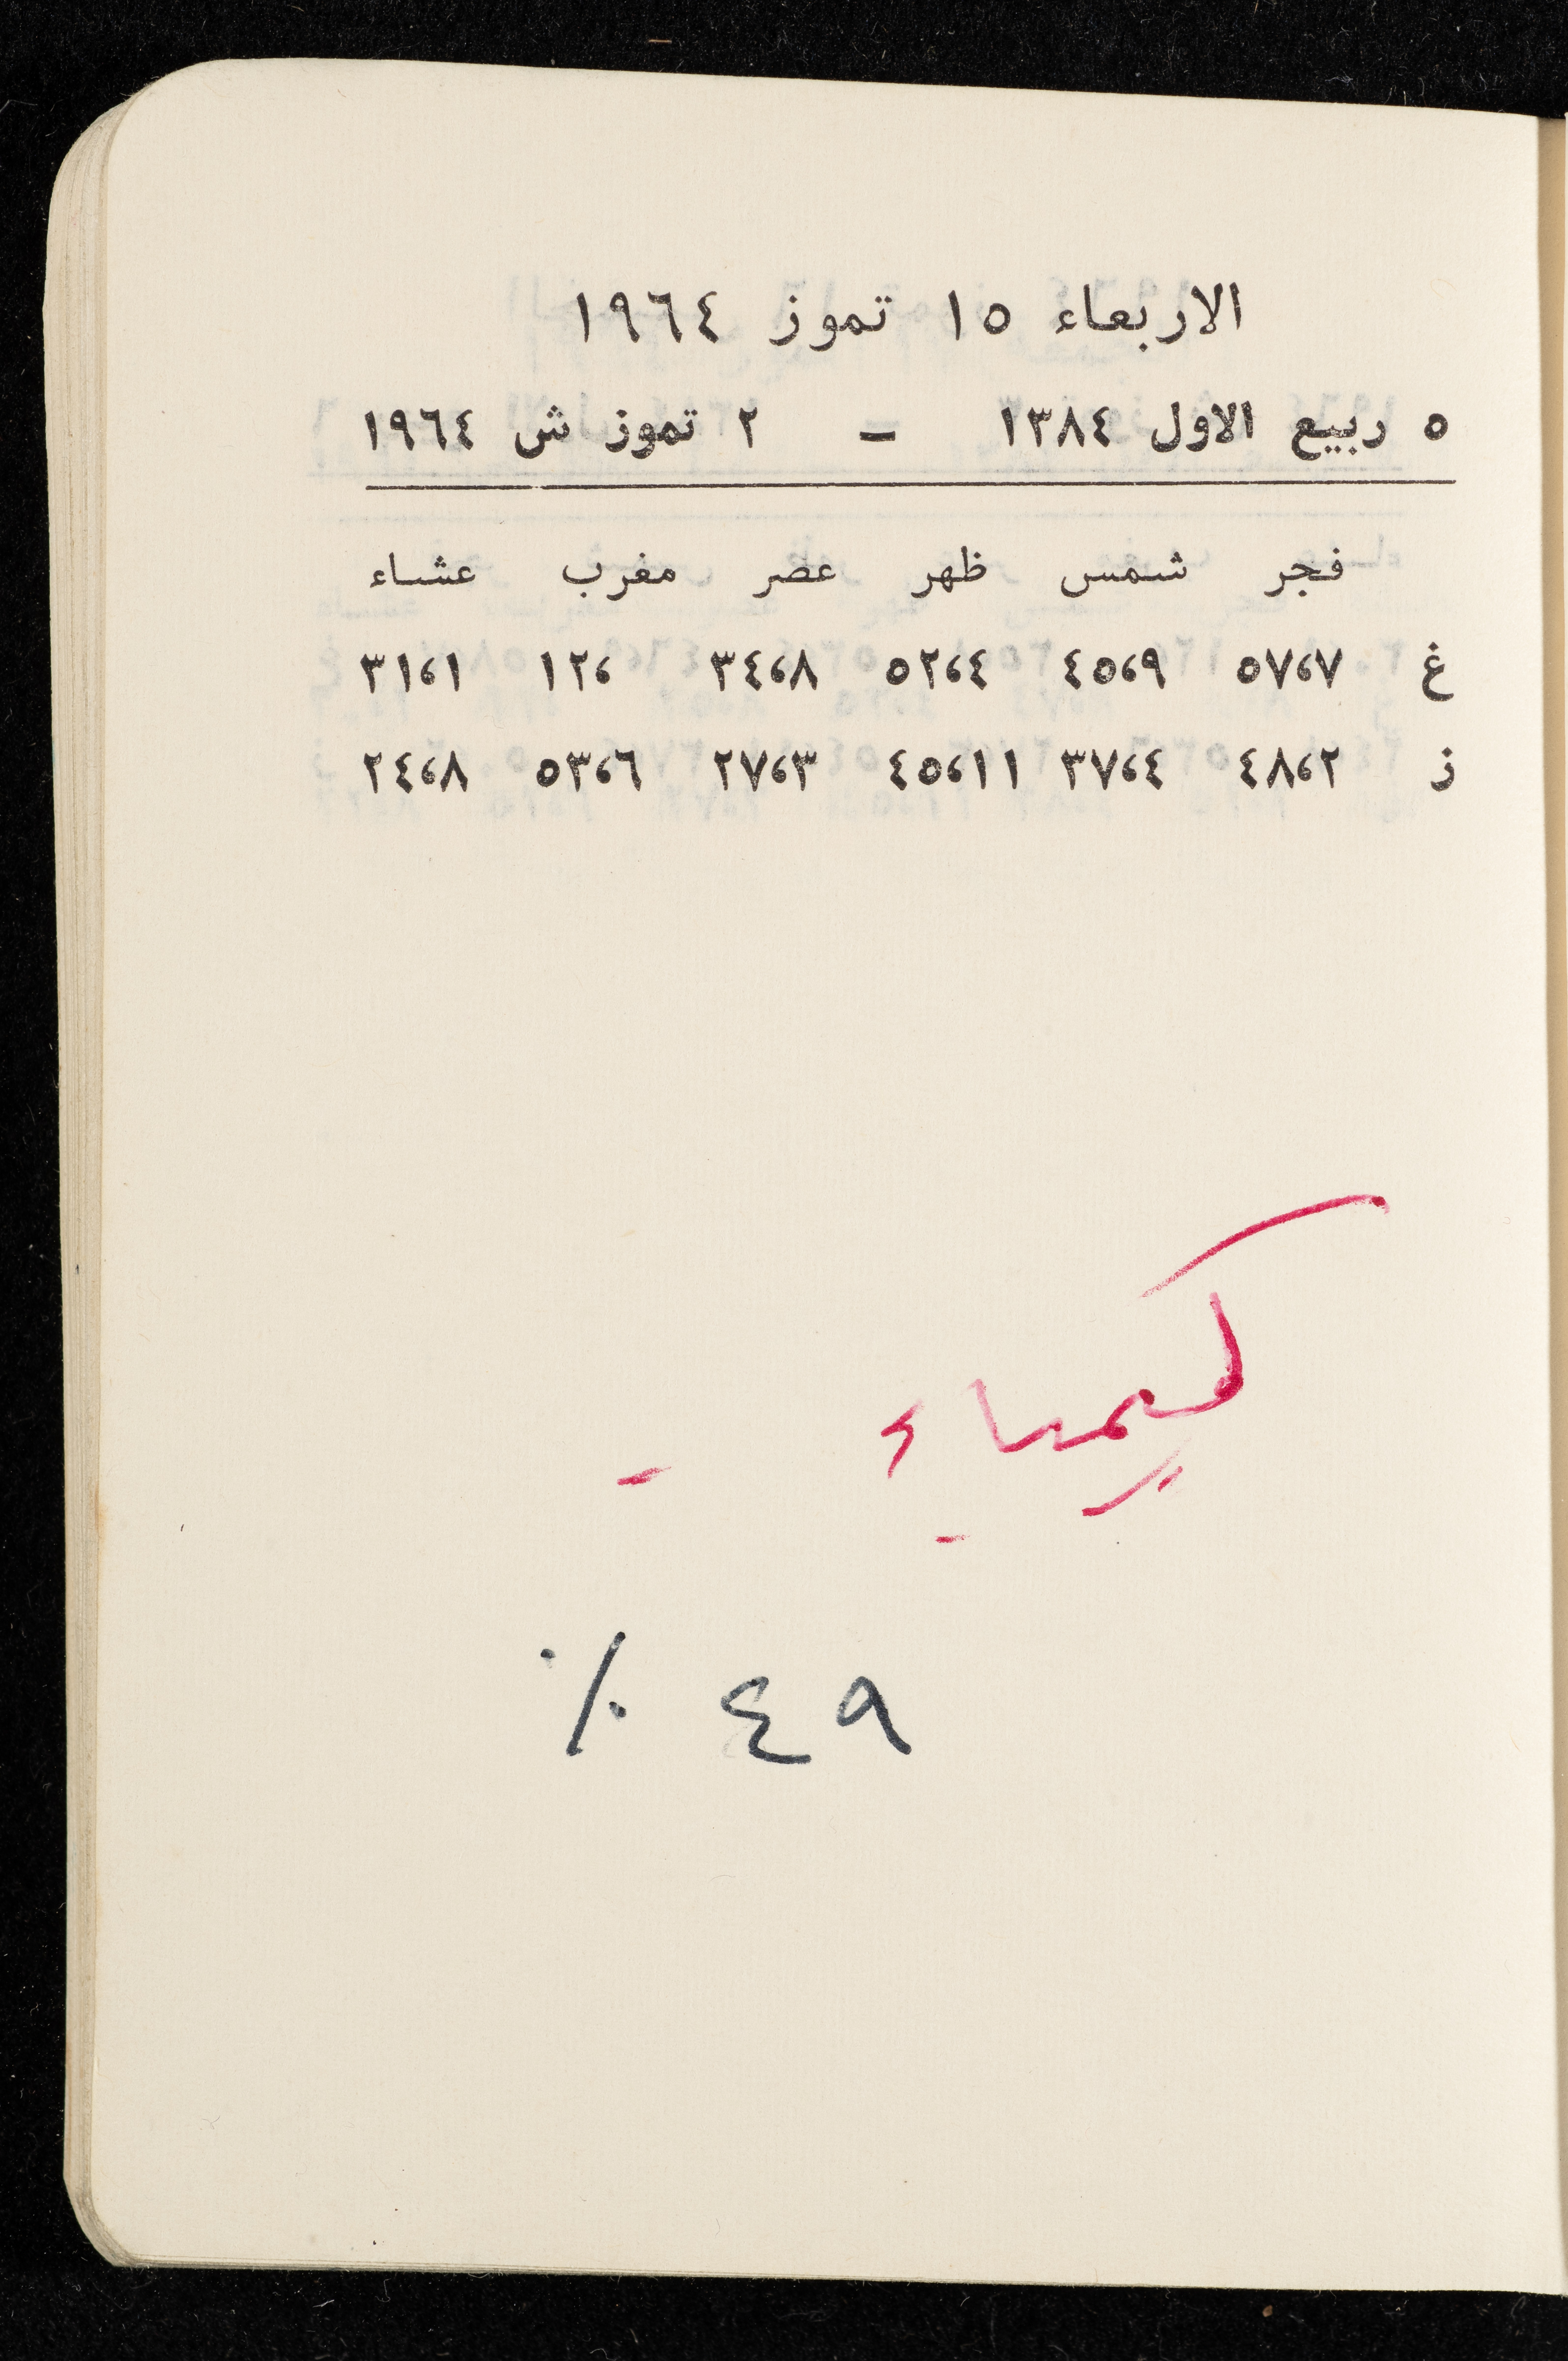 الاربعاء ١٥ تموز ١٩٦٤
٥ ربيع الاول ١٣٨٤ – ٢ تموز ش ١٩٦٤
فجر شمس ظهر عصر مغرب عشاء
غ ٧،٥٧ ٩،٤٥ ٤،٥٢ ٨،٣٤ ،١٢ ١،٣١
ز ٢،٤٨ ٤،٣٧ ١١،٤٥ ٣،٢٧ ٦،٥٣ ٨،٢٤
كيمياء -
٤٩ ٪